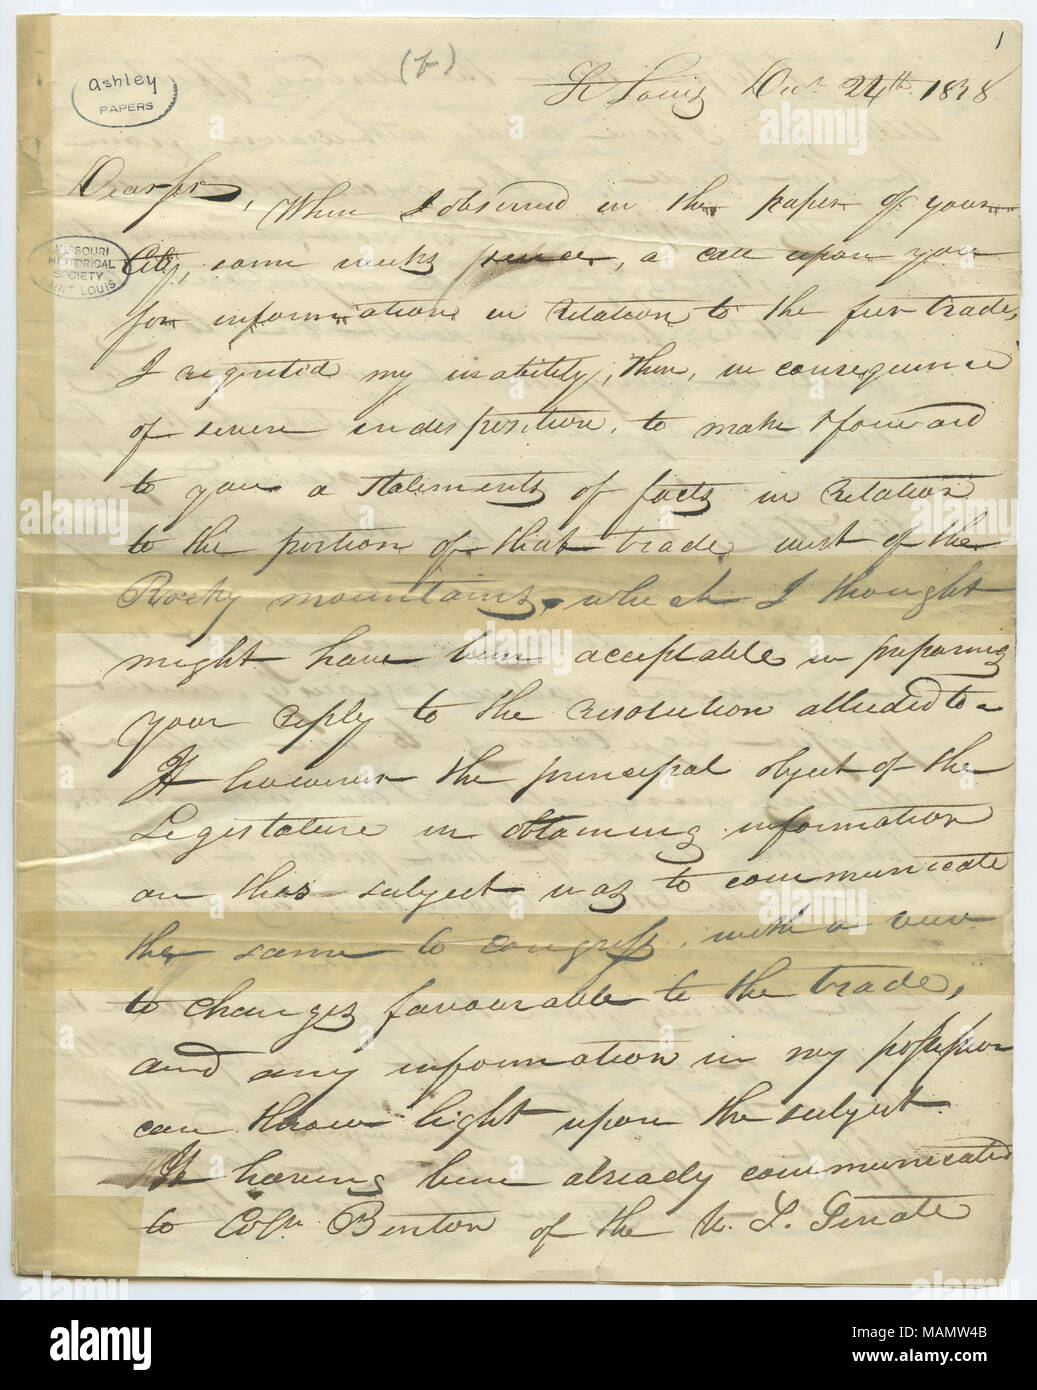 1
(2)
Ashley
PAPERS
St Louis Dec. 24th 1828
Dear sir, When I observed in the paper of your
MISSOURI
HISTORICAL
SOCIETY
SAINT LOUIS
City, some weeks since, a call upon you
for information in relation to the fur trade,
I regretted my inability, then, in consequence
of severe indisposition, to make & forward
to you a statement of facts in relation
to the portion of that trade west of the
Rocky mountains, which I thought
might have been acceptable in preparing
your reply to the resolution alluded to -
If however the principal object of the
Legislature in obtaining information
on this subject was to communicate
the same to Congress, with a view
to changes favourable to the trade,
and any information in my possession
can throw light upon the subject.
It having been already communicated
to Coln. Benton of the U. S. Senate
alamy
alamy
Image ID: MAMW4B
www.alamy.com